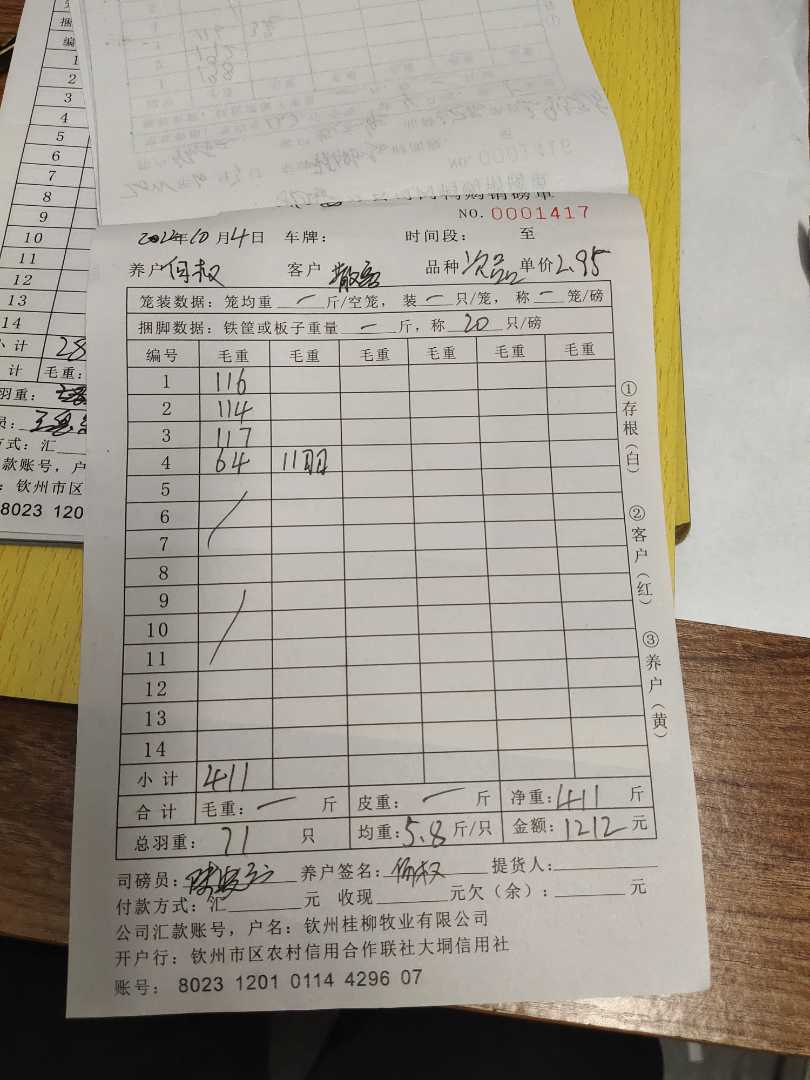 小 计 28
计 毛重:
羽重:
方式: 汇
款账号, 户
: 钦州市区
8023 120
公司肉鸭购销磅单
NO. 0001417
年10月4日 车牌: 时间段: 至
养户 何权 客户 散客 品种 次品 单价 2.95
笼装数据: 笼均重 一 斤/空笼, 装 一 只/笼, 称 一 笼/磅
捆脚数据: 铁筐或板子重量 一 斤, 称 20 只/磅
编号 毛重 毛重 毛重 毛重 毛重 毛重
1 116
2 114
3 117
4 64 11羽
5
6
7
8
9
10
11
12
13
14
小 计 411
合 计 毛重: 一 斤 皮重: 一 斤 净重: 411 斤
总羽重: 71 只 均重: 5.8 斤/只 金额: 1212 元
司磅员: 养户签名: 何权 提货人:
付款方式: 汇 元 收现 元欠(余): 元
公司汇款账号, 户名: 钦州桂柳牧业有限公司
开户行: 钦州市区农村信用合作联社大垌信用社
账号: 8023 1201 0114 4296 07
①存根(白)
②客户(红)
③养户(黄)